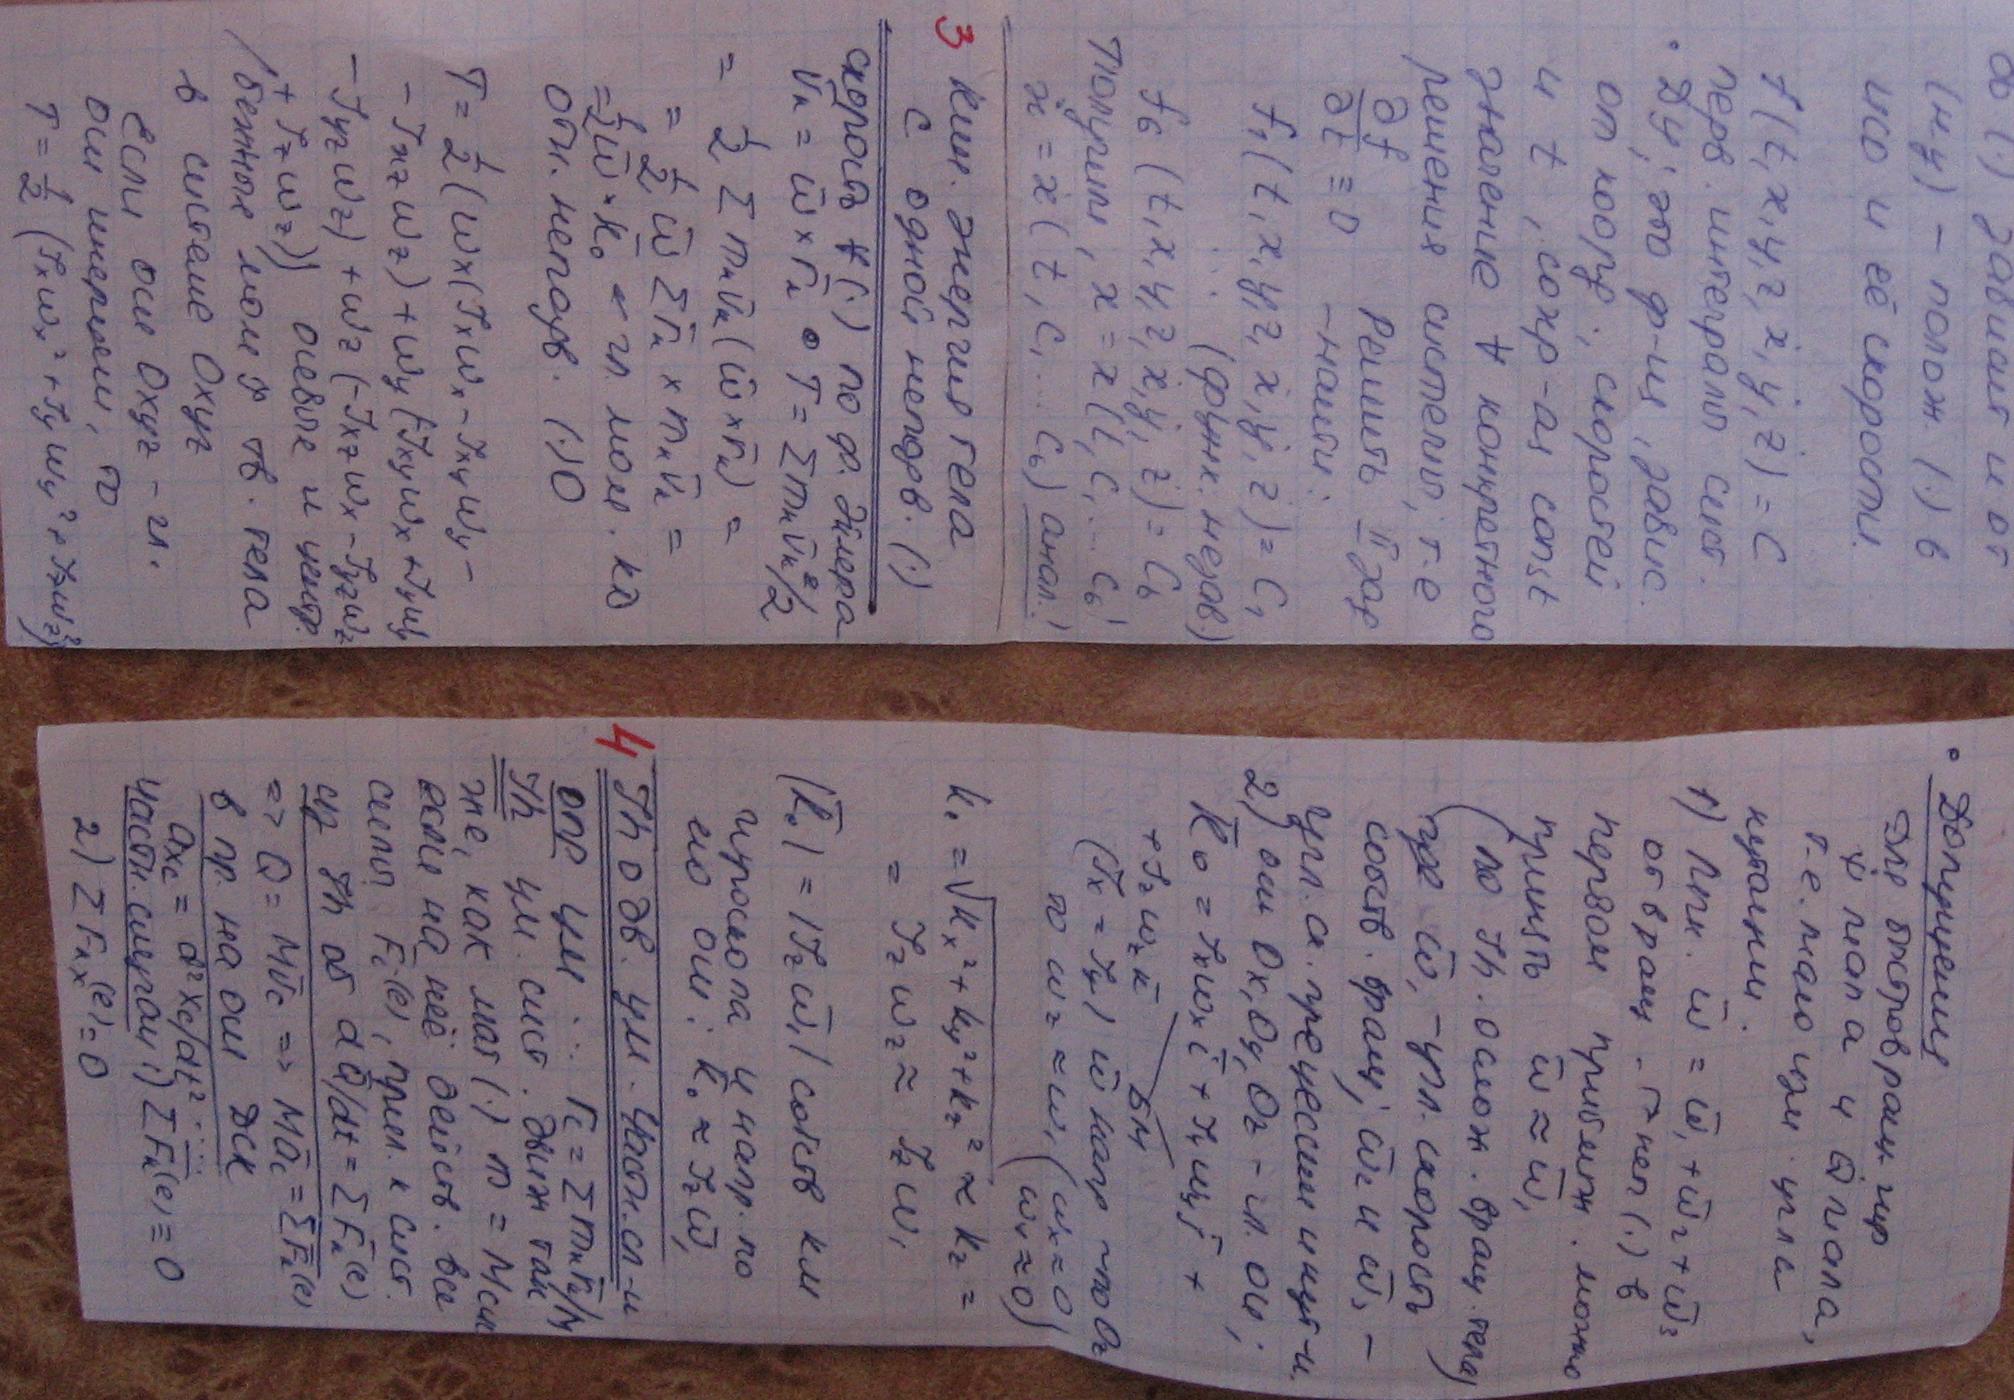 ∂в (·) зависит и от
(н.у) – полож. (·) в
исо и её скорости.
f(t, x, y, z, ẋ, ẏ, ż) = C
перв. интеграл сист.
• Ду; это ф-ия, завис.
от коор., скоростей
и t, сохр-ая const
значение ∀ конкретного
решения системы, т.е
∂f/∂t ≡ 0 Решить II зад
– найти:
f₁(t, x, y, z, ẋ, ẏ, ż) = C₁
⋮ (функ. незав.)
f₆(t, x, y, z, ẋ, ẏ, ż) = C₆
Получим, x = x(t, C₁ ... C₆)
ẋ = ẋ(t, C₁ ... C₆) анал.!
3 Кин. энергия тела
с одной неподв. (·)
скорость ∀(·) по ф. Эйлера
v̄ₖ = ω̄ × r̄ₖ • T = Σmₖv̄ₖ²/2
= ½ Σ mₖv̄ₖ(ω̄ × r̄ₖ) =
= ½ ω̄ Σ r̄ₖ × mₖv̄ₖ =
= ½ ω̄ · k̄₀ ← гл. мом. кд
отн. неподв. (·)О
T = ½(ωx(Jxωx – Jxyωy –
– Jxzωz) + ωy(–Jxyωx + Jyωy
– Jyzωz) + ωz(–Jxzωx – Jyzωz
+ Jzωz)) осевые и центр.
/бежные мом J тв. тела
в системе Oxyz
Если оси Oxyz – гл.
оси инерции, то
T = ½(Jxωx² + Jyωy² + Jzωz²)
• Допущения
Для быстровращ. гир
ψ̇ мала и θ̇ мала,
т.е. мало изм. угла
нутации.
1) Пти. ω̄ = ω̄₁ + ω̄₂ + ω̄₃
об вращ. Г неп(·) в
первом приближ. можно
принять ω̄ ≈ ω̄₁
(по Th. о слож. вращ. тела)
где ω̄₁ – угл. скорость
собств. вращ; ω̄₂ и ω̄₃ –
угл. ск. прецессии и нут-и.
2) оси Ox, Oy, Oz – гл. оси;
K̄₀ = Jxωx ī + Jyωy j̄ +
+ Jzωz k̄ БМ
(Jx = Jy) ω̄ напр по Oz
то ωz ≈ ω₁ (ωx ≈ 0
ωy ≈ 0)
k₀ = √kx² + ky² + kz² ≈ kz =
= Jzωz ≈ Jzω₁
(k̄₀) = |Jz ω̄₁| собств км
гироскопа и напр. по
его оси: k̄₀ ≈ Jz ω̄₁
4 Th о дв. ЦМ. Част. сл-и
опр ЦМ: r̄c = Σmₖr̄ₖ/M
Th ЦМ. сист. движ так
же, как мат(·) m = Mсис
если на неё действ. все
силы F̄ₖ(e), прил. к сист.
из Th об dQ̄/dt = ΣF̄ₖ(e)
=> Q̄ = Mv̄c => Māc = ΣF̄ₖ(e)
в пр. на оси ДСК
axc = d²xc/dt² ....
Част. случаи 1) ΣF̄ₖ(e) = 0
2) ΣFₖx(e) = 0